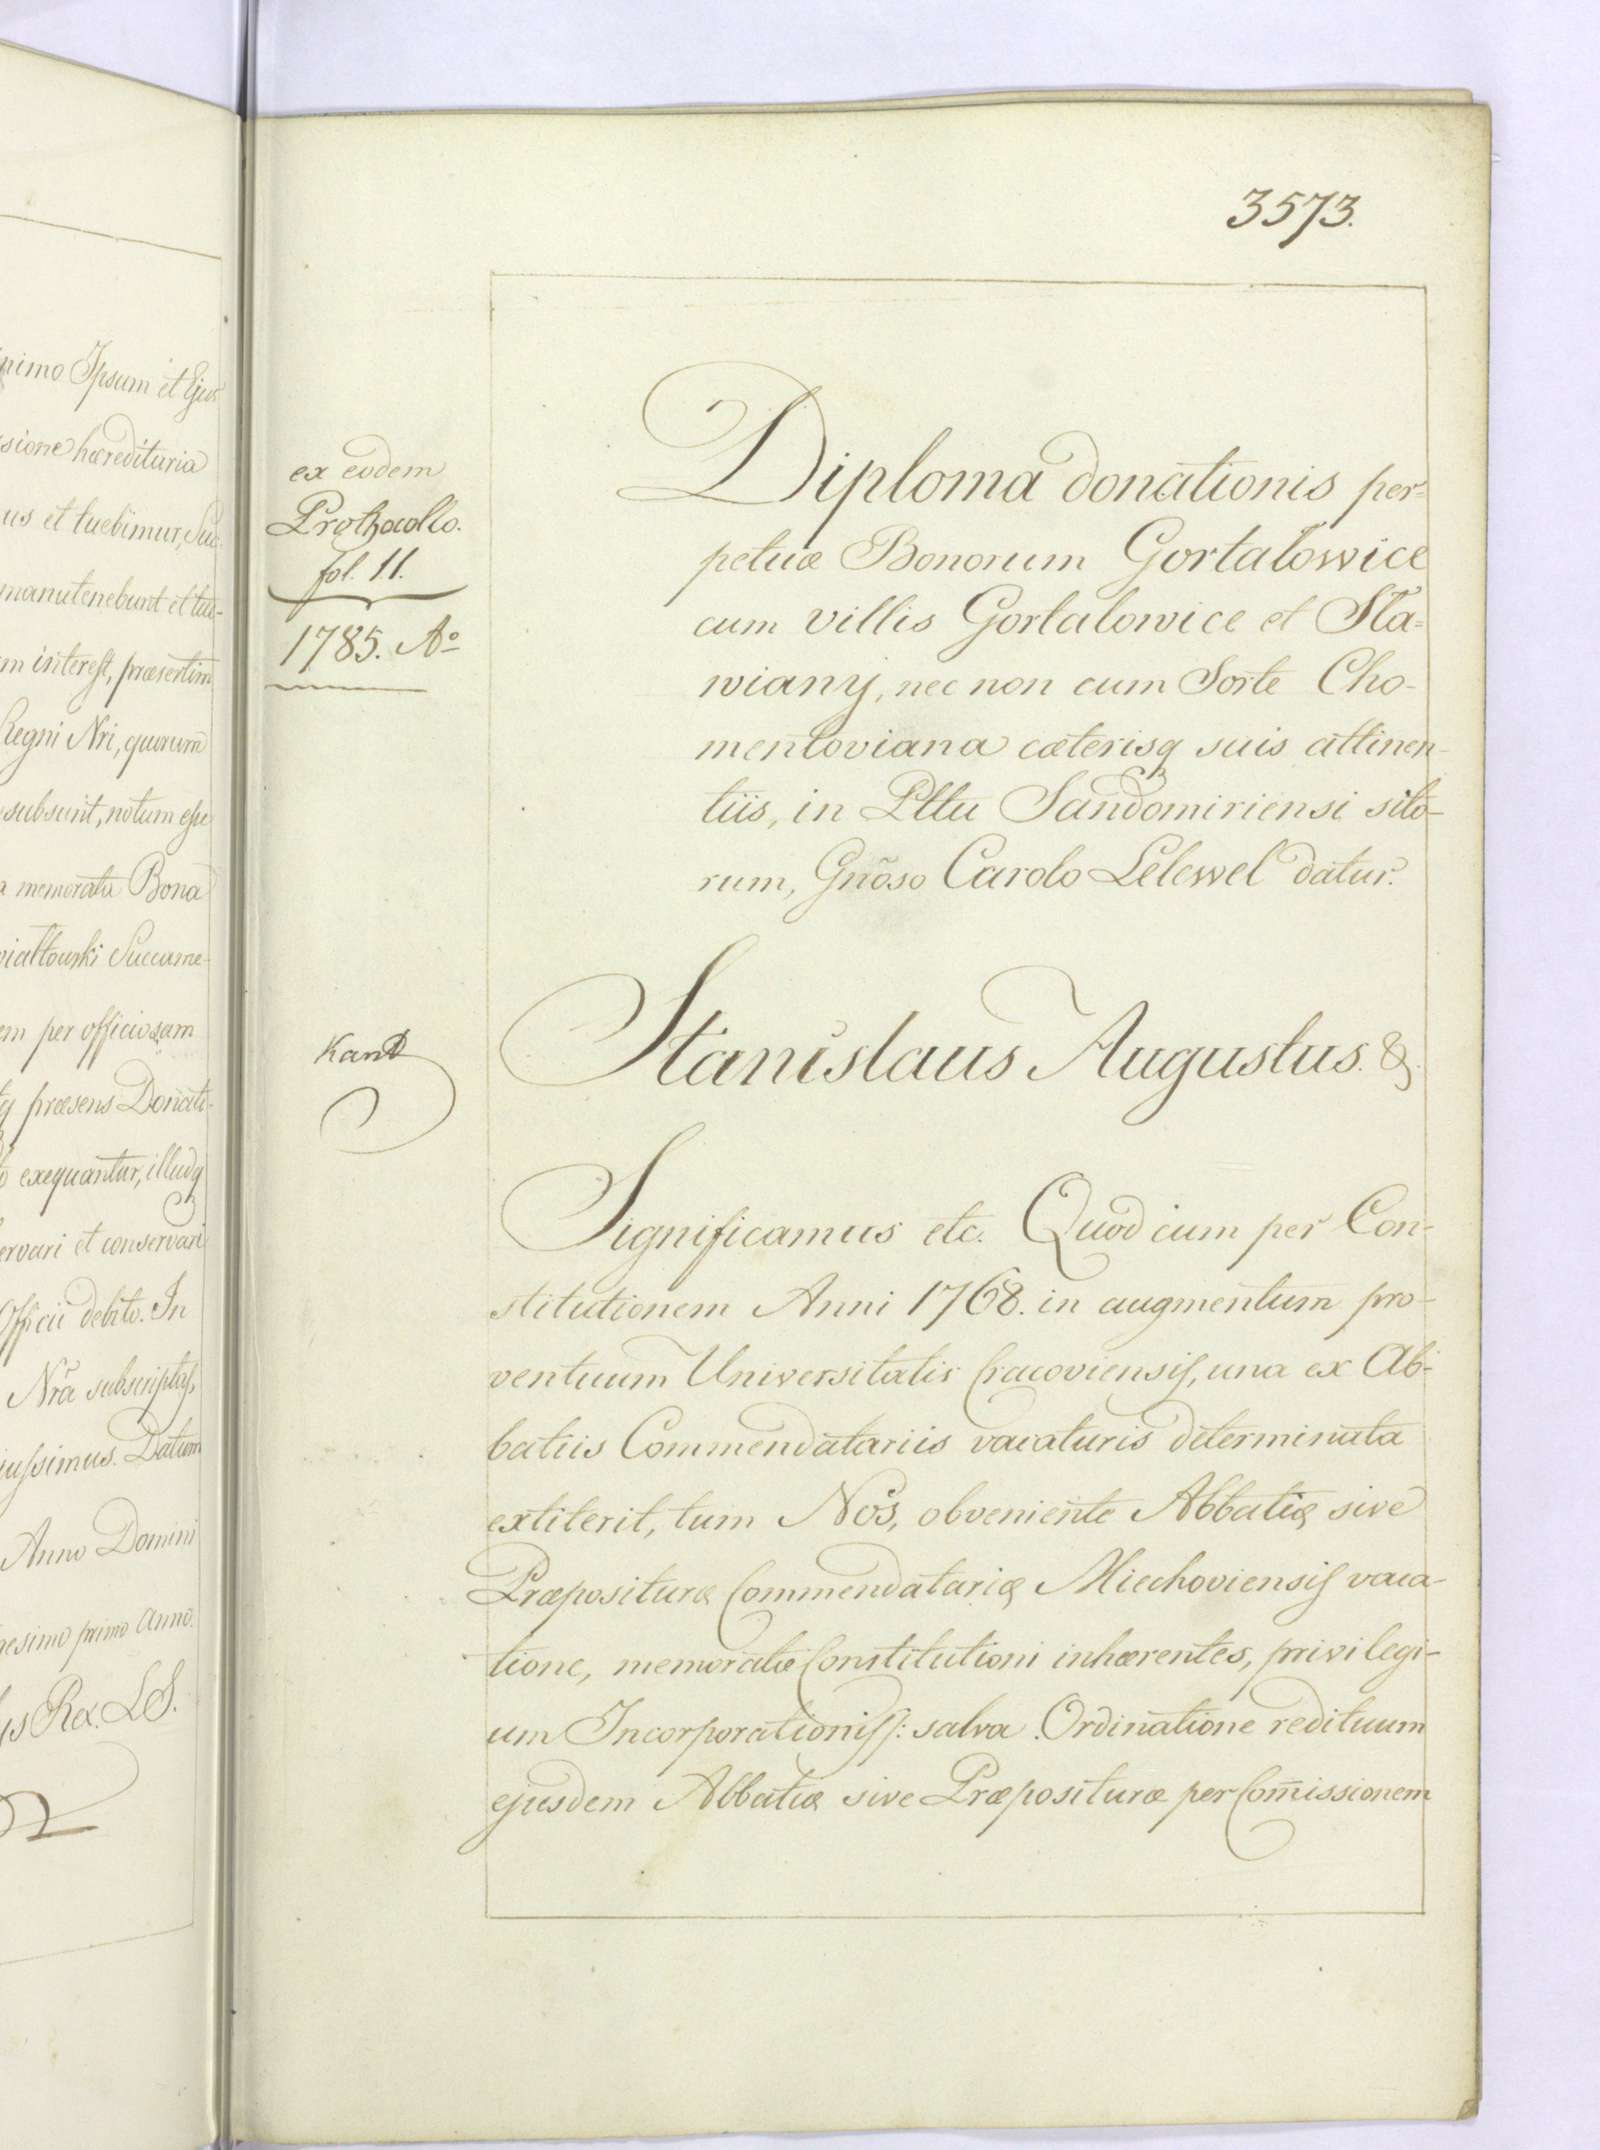 nimo Ipsum et Ejus
sione hæredituria
us et tuebimur, Suc-
manutenebunt et tue-
m interest, præsertim
Regni Nri, quorum
subsunt, notum esse
a memorata Bona
Succame-
em per officiosam
præsens Donati-
exequantur, illudq
ervari et conservari
Officii debito. In
Nrã subscriptas,
iussimus. Datum
Anno Domini
gesimo primo Anno.
us Rex. LS.
3573.
ex eodem
Prothocollo.
fol. 11.
1785. Aº
Kant
Diploma donationis per-
petuæ Bonorum Gortatowice
cum villis Gortatowice et Sta-
wiany, nec non cum Sorte Cho-
mentoviana cæterisq suis attinen-
tiis, in Pttu Sandomiriensi sito-
rum, Gnõso Carolo Lelewel datur.
Stanislaus Augustus. &.
Significamus etc. Quod cum per Con-
stitutionem Anni 1768. in augmentum pro-
ventuum Universitatis Cracoviensis, una ex Ab-
batiis Commendatariis vacaturis determinata
extiterit, tum Nos, obveniente Abbatiæ sive
Præposituræ Commendatariæ Miechoviensis vaca-
tione, memoratæ Constitutioni inhærentes, privilegi-
um Incorporationis /: salva Ordinatione redituum
ejusdem Abbatiæ sive Præposituræ per Com̃issionem